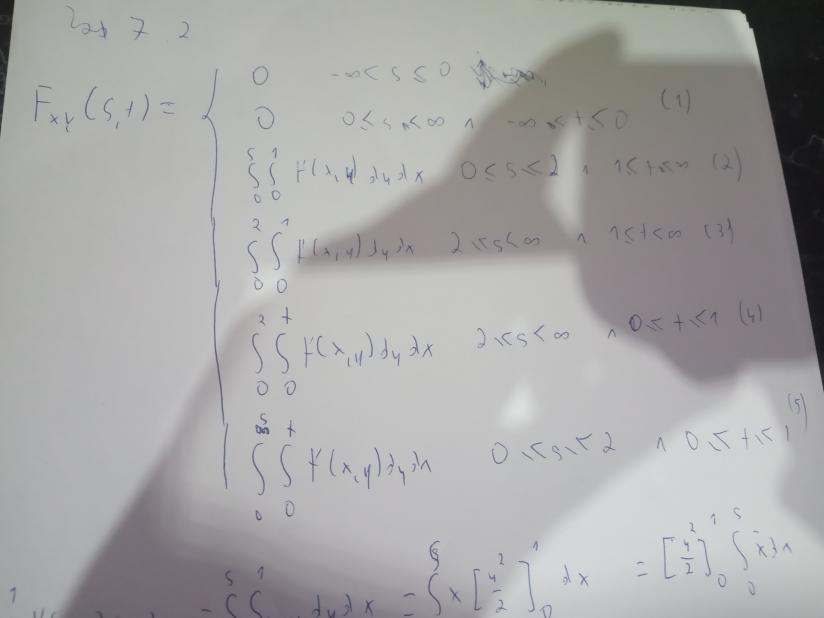 7 2
F_{XY}(s,t) = {
0 -∞ < s ≤ 0
0 0 ≤ s < ∞ ∧ -∞ < t ≤ 0 (1)
∫_0^s ∫_0^1 f(x,y) dy dx 0 ≤ s ≤ 2 ∧ 1 ≤ t ≤ ∞ (2)
∫_0^2 ∫_0^1 f(x,y) dy dx 2 ≤ s < ∞ ∧ 1 ≤ t < ∞ (3)
∫_0^2 ∫_0^t f(x,y) dy dx 2 ≤ s < ∞ ∧ 0 ≤ t ≤ 1 (4)
∫_0^s ∫_0^t f(x,y) dy dx 0 ≤ s ≤ 2 ∧ 0 ≤ t ≤ 1 (5)
= ∫^s ∫^1 dy dx = ∫ x [y^2/2]_0^1 dx = [y^2/2]_0^1 ∫_0^s x dx